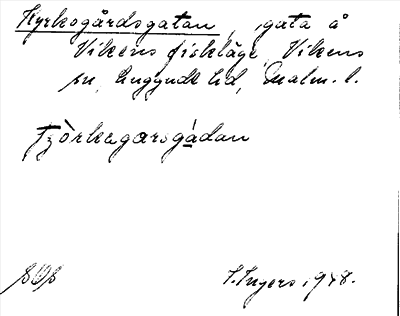 Kyrkogårdsgatan, gata å
Vikens fiskläge, Vikens
sn, Luggude hd, Malm. l.
tʒòrkagarsgádan
I. Ingers 1948.